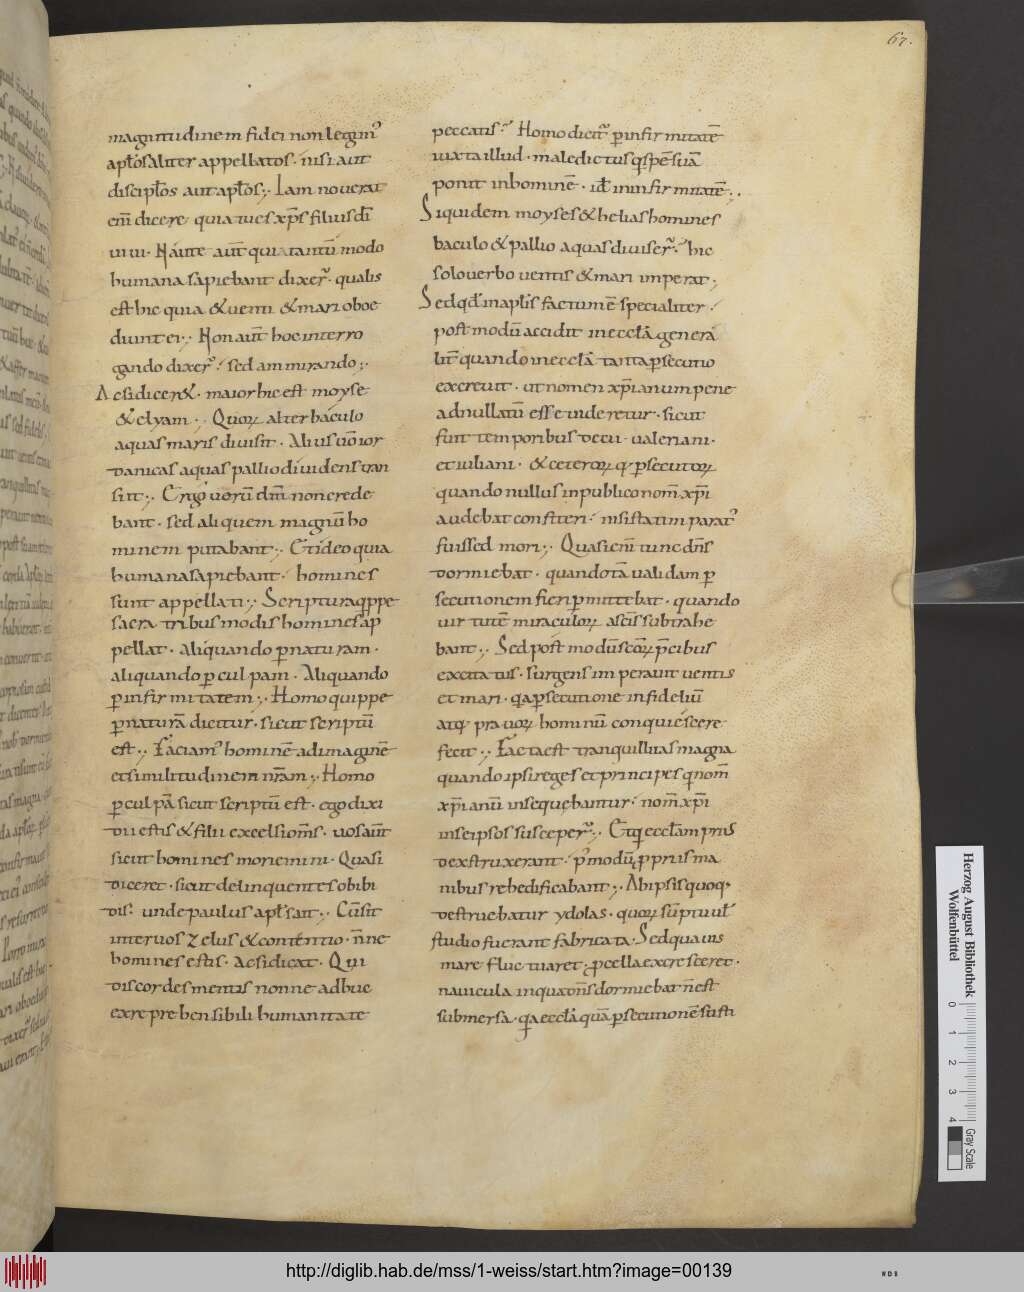 67.
magnitudinem fidei non legimꝰ
apłos aliter appellatos · nisi aut
discipłos aut apłos ;, Iam noverat
eni̅ dicere quia tu es xp̅s filius dī
vivi · Hi autē aut̅ quia tantū modo
humana sapiebant dixer̄ · qualis
est hic quia & venti & mari oboe
diunt ei ;, Non aut̅ hoc interro
gando dixer̄ · sed ammirando ;,
Ac si dicer& · maior hic est moyse
& elyam ;, Quoꝝ alter baculo
aquas maris divisit · Alius ūo ior
danicas aquas pallio dividens tran
siit ;, Ergo verū dm̄ non crede
bant · sed aliquem magnū ho
minem putabant ;, Et ideo quia
humana sapiebant · homines
sunt appellati ;, Scriptura q̨ppe
sacra tribus modis homines ap
pellat · aliquando ꝑ naturam ·
aliquando ꝑ culpam · Aliquando
ꝑ infirmitatem ;, Homo quippe
ꝑ naturā dicitur · sicut scriptū
est ;, Faciamꝰ hominē ad imaginē
et similitudinem nr̄am ;, Homo
ꝑ culpā sicut scriptū est · ego dixi
dii estis & filii excelsi om̄s · vos aut̅
sicut homines moriemini · Quasi
diceret · sicut delinquentes obibi
tis · unde paulus apłs ait ;, Cū sit
inter vos zelus & contentio · n̄ne
homines estis · Ac si dicat · Qui
discordes mentis nonne adhuc
ex reprehensibili humanitate
peccatis · Homo dicit̄ ꝑ infirmitatē
iuxta illud · maledictus q̨ spē suā
ponit in hominē · id̄ in infirmitatē ;,
Siquidem moyses & helias homines
baculo & pallio aquas diviser̄ · hic
solo verbo ventis & mari imperat ;
Sed qd̄ in apłis factum ē specialiter ·
post modū accidit in eccłā genera
lit̄ quando in eccłā tanta ꝑsecutio
excrevit · ut nomen xp̅ianum pene
adnullatū esse videretur · sicut
fuit temporibus decii · valeriani ·
et iuliani · & ceteroꝝ ꝑsecutoꝝ
quando nullus in publico nom̄ xp̅i
audebat confiteri · nisi statim paratꝰ
fuissed mori ;, Quasi eni̅ tunc dn̄s
dormiebat · quando tā validam ꝑ
secutionem fieri ꝑmittebat · quando
virtutē miraculoꝝ a sc̄is subtrahe
bant ;, Sed post modū sc̄oꝝ p̄cibus
excitatus · surgens imperavit ventis
et mari · q̨a ꝑsecutione infideliū
atq; pravoꝝ hominū conquiescere
fecit ;, Facta est tranquillitas magna
quando ipsi reges et principes q̨ nom̄
xp̅ianū insequebantur · nom̄ xp̅i
in se ipsos susceper̄ ;, Et q̨ eccłam priꝰ
dextruxerant · pꝰ modū ꝓpriis ma
nibus rehedificabant ;, Ab ipsis quoq;
destruebatur ydolas · quoꝝ sūptu ul̄
studio fuerant fabricata · Sed quamvis
mare fluctuaret · procella excresceret ·
navicula in qua dn̄s dormiebat n̄ est
submersa · q̨a eccłā quā ꝑsecutionē susti
Herzog August Bibliothek
Wolfenbüttel
0 1 2 3 4
Gray Scale
http://diglib.hab.de/mss/1-weiss/start.htm?image=00139